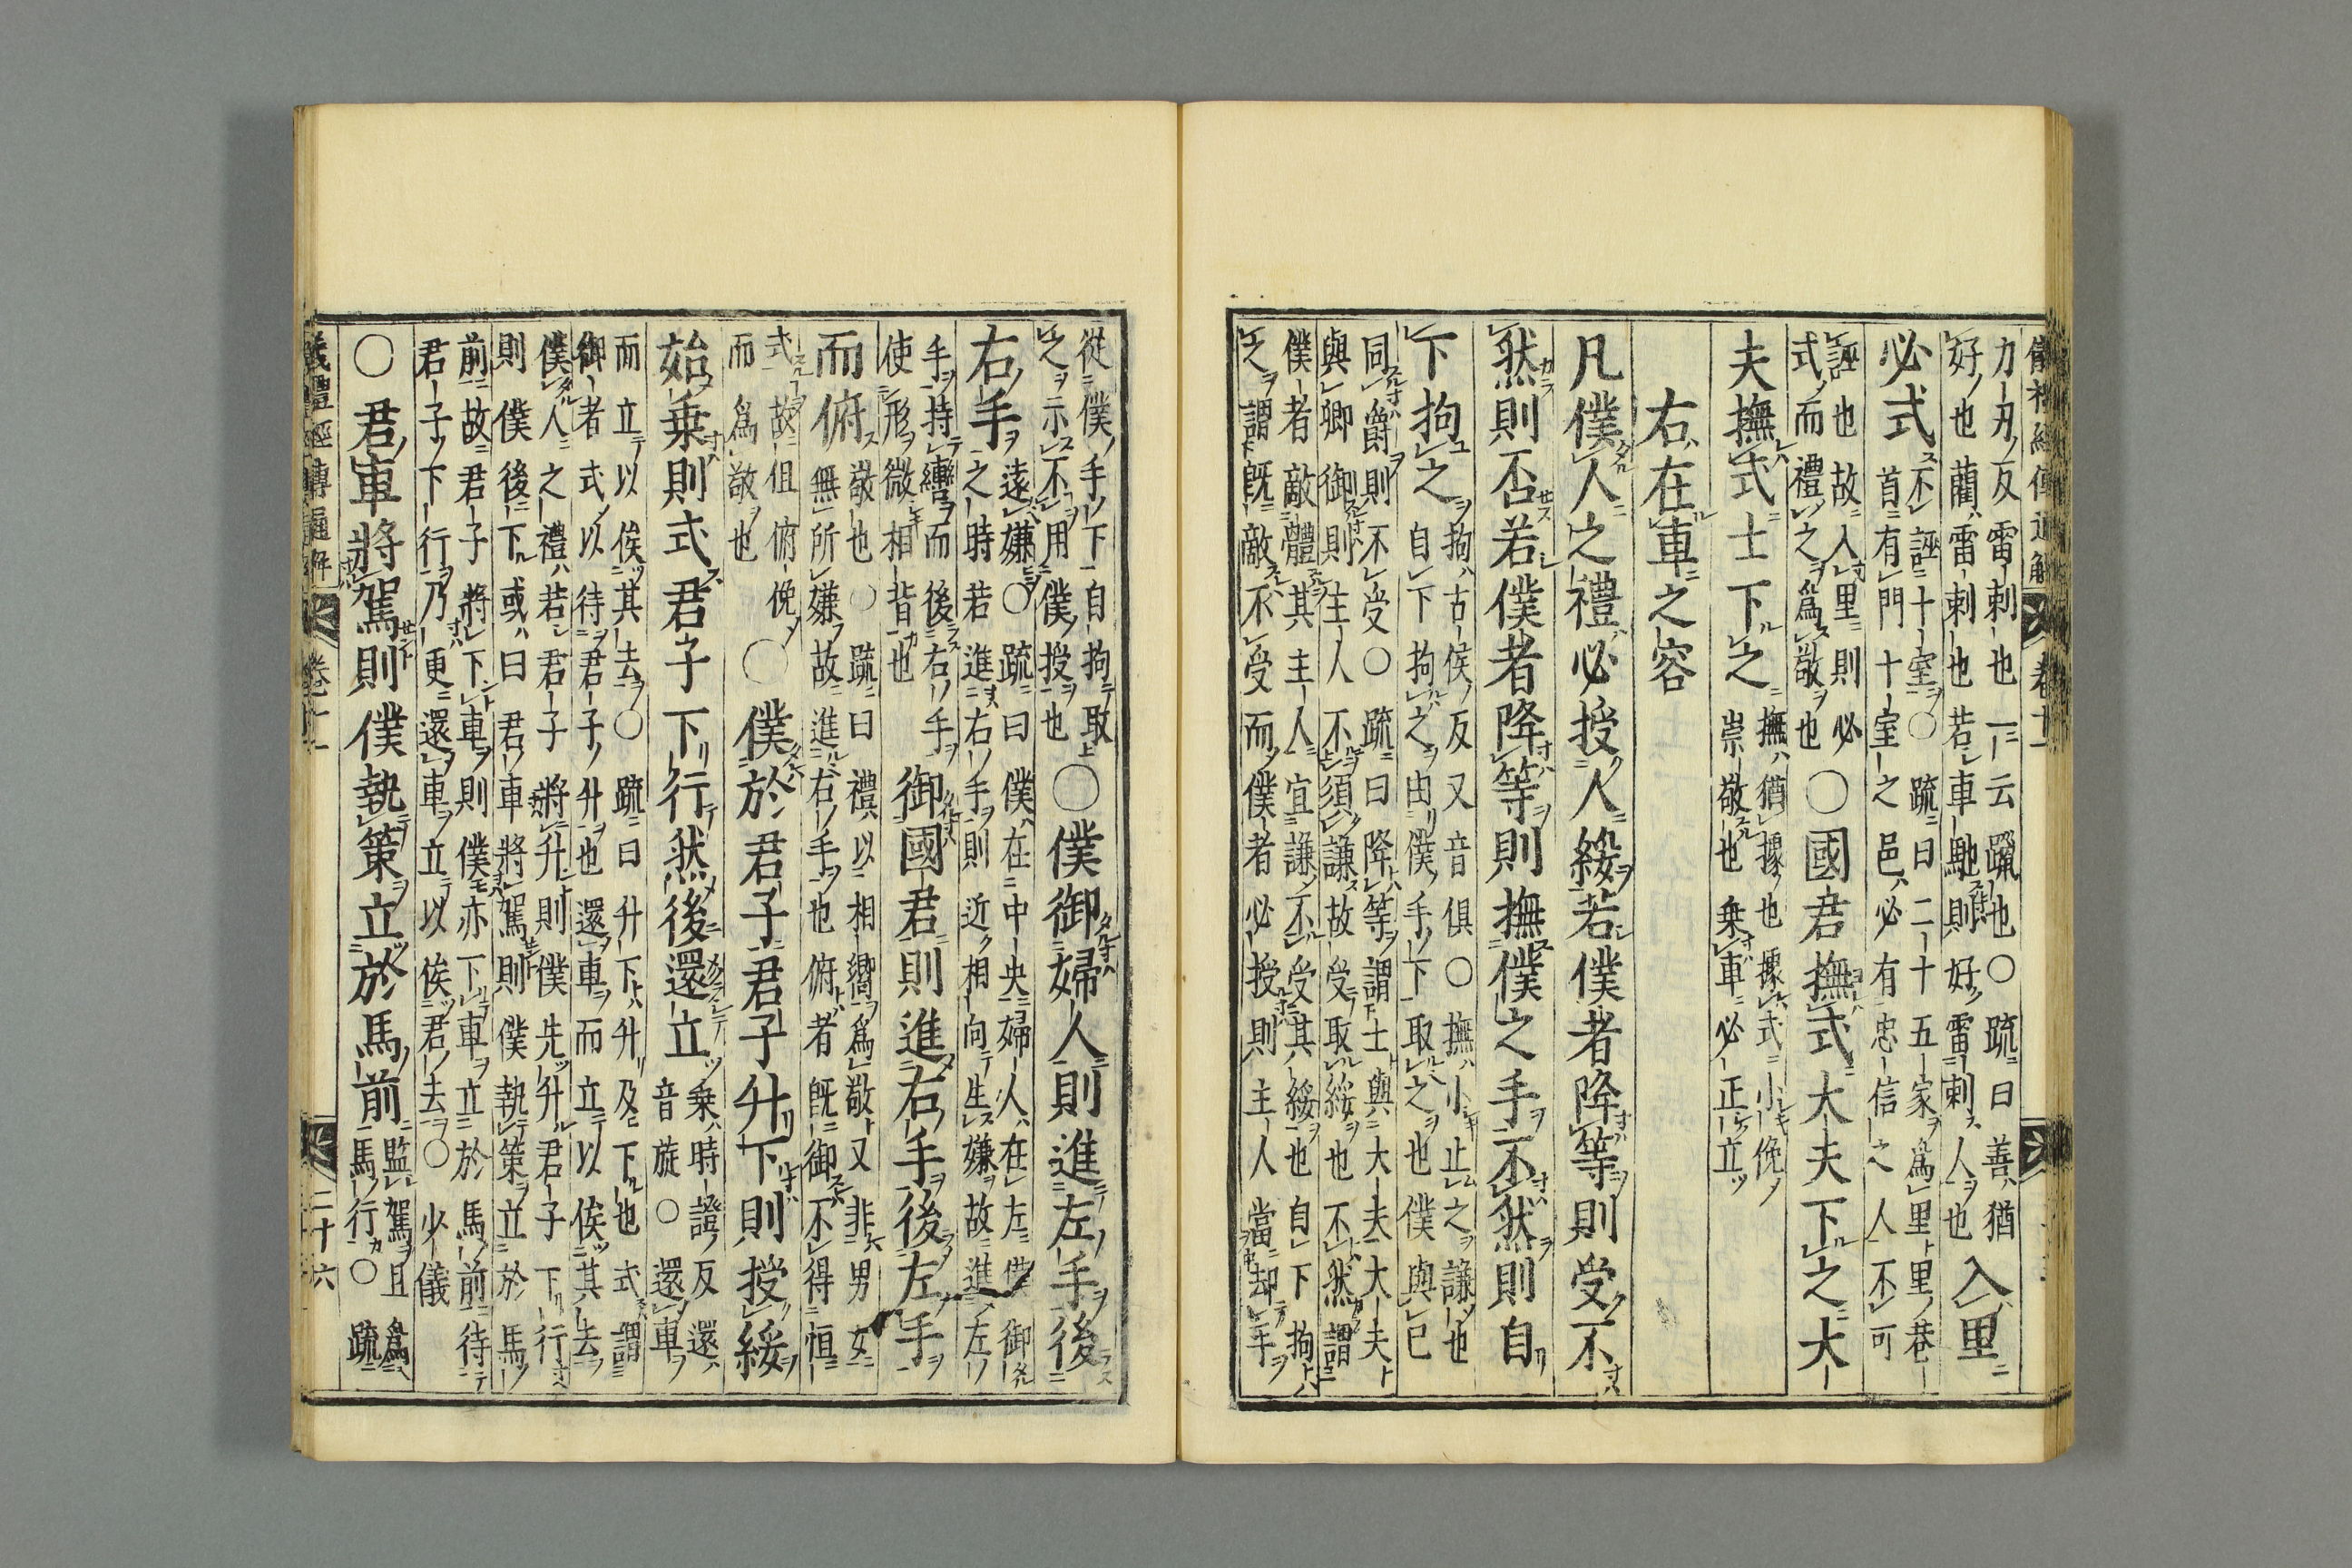 儀禮經傳通解　卷十一
力刃反雷刺也一云躐也○疏曰善猶
好也藺雷刺也若車馳則好雷刺人也
入里
必式
不誣十室○疏曰二十五家爲里里巷
首有門十室之邑必有忠信之人不可
誣也故入里則必
式而禮之爲敬也
○國君撫式大夫下之大
夫撫式士下之
撫猶據也據式小俛
崇敬也乗車必正立
右在車之容
凡僕人之禮必授人綏若僕者降等則受不
然則否若僕者降等則撫僕之手不然則自
下拘之
拘古侯反又音俱○撫小止之謙也
自下拘之由僕手下取之也僕與已
同爵則不受○疏曰降等謂士與大夫大夫
與卿御則主人不須謙故受取綏也不然謂
僕者敵體其主人宜謙不受其綏也自下拘
之謂旣敵不受而僕者必授則主人當却手
從僕手下自拘取
之示不用僕授也
○僕御婦人則進左手後
右手
遠嫌○疏曰僕在中央婦人在左僕御
之時若進右手則近相向生嫌故進左
手持轡而後右手
使形微相背也
御國君則進右手後左手
而俯
敬也○疏曰禮以相嚮爲敬又非男女
無所嫌故進右手也俯者旣御不得恒
式故但俯俛
而爲敬也
○僕於君子君子升下則授綏
始乗則式君子下行然後還立
乗時證反還
音旋○還車
而立以俟其去○疏曰升下升及下也式謂
御者式以待君子升也還車而立以俟其去
僕人之禮若君子將升則僕先升君子下行
則僕後下或曰君車將駕則僕執策立於馬
前故君子將下車則僕亦下車立於馬前待
君子下行乃更還車立以俟君去○少儀
○君車將駕則僕執策立於馬前
監駕且爲
馬行○疏
儀禮經傳通解　卷十一　二十六